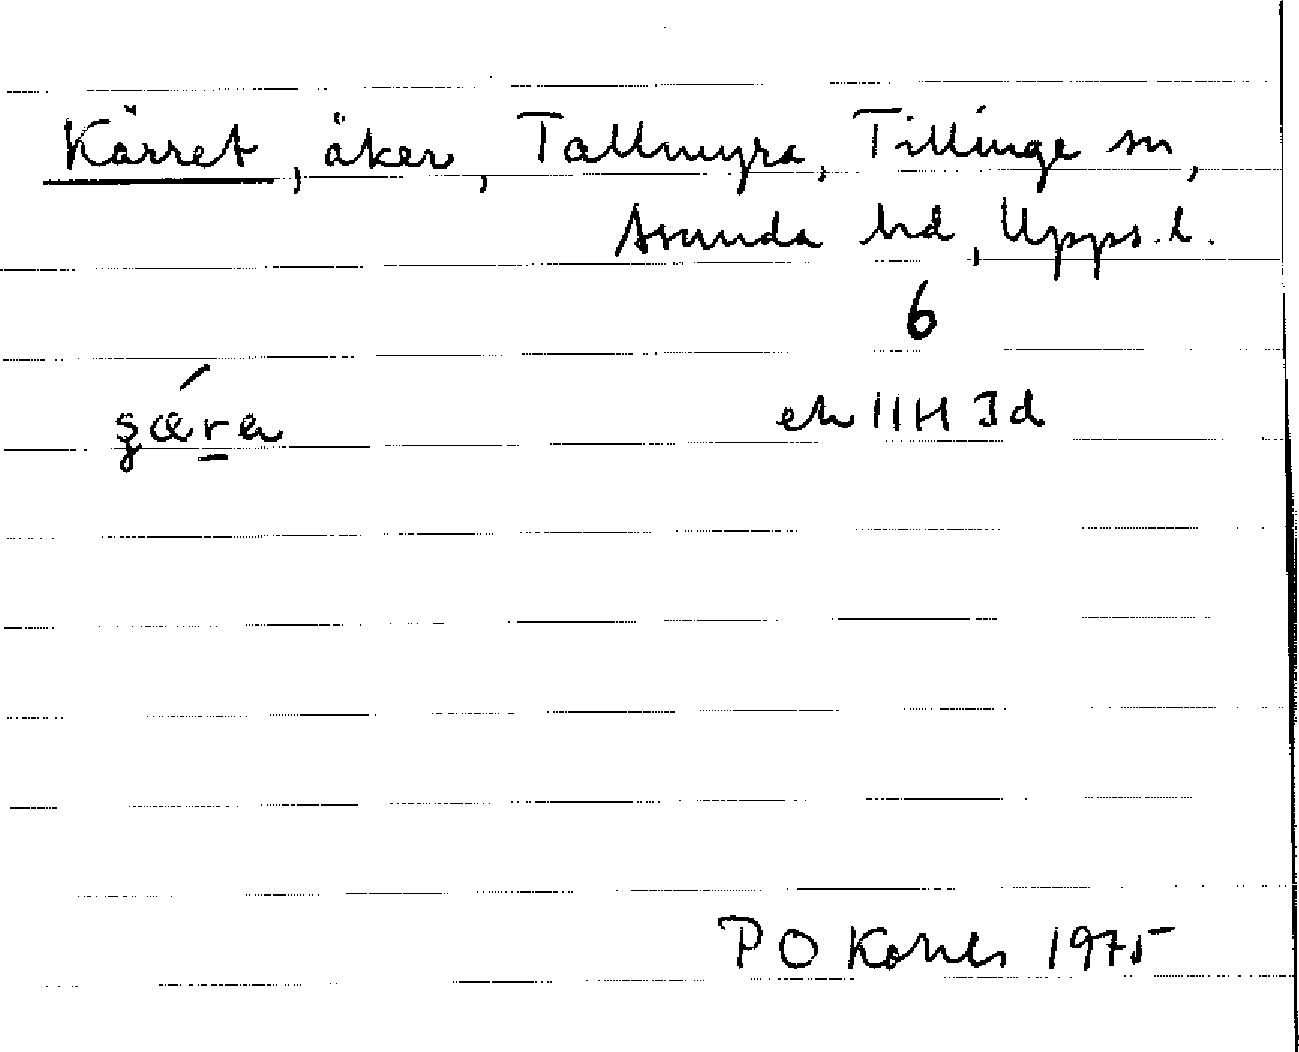 Kärret, åker, Tallmyra, Tillinge sn,
Åsunda hd, Upps. l.
6
ek 11H 3d
P O Kårles 1975